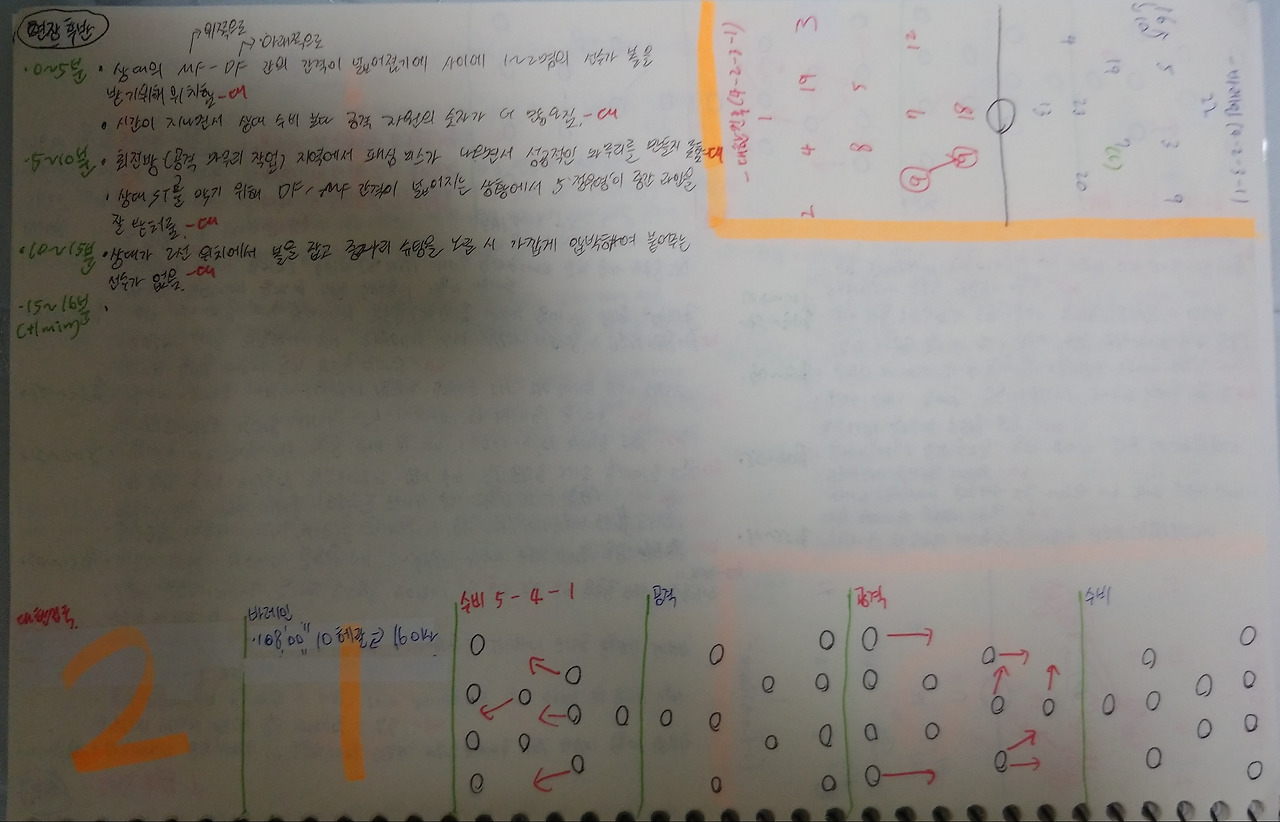 연장 후반
위쪽으로
아래쪽으로
·0~5분 · 상대의 MF-DF 간의 간격이 넓어졌기에 사이에 1~2명의 선수가 볼을
받기위해 위치함.-대
· 시간이 지나면서 상대 수비 보다 공격 자원의 숫자가 더 많아짐.-대
·5~10분 · 최전방(공격 마무리 작업) 지역에서 패싱 미스가 나오면서 성공적인 마무리를 만들지 못함-대
· 상대 ST를 막기 위해 DF, MF 간격이 넓어지는 상황에서 5 정우영이 중간 라인을
잘 받쳐줌.-대
·10~15분 · 상대가 2선 위치에서 볼을 잡고 중거리 슈팅을 노릴 시 가깝게 압박하여 붙어주는
선수가 없음.-대
·15~16분 ·
(+1min)
-대한민국(4-2-3-1)
1
3
19
4
2
5
8
12
7
18
13
4
23
20
19
5
3
9
22
-바레인(4-2-3-1)
대한민국.
2
바레인
·108'00" 10
1
수비 5-4-1
공격
공격
수비